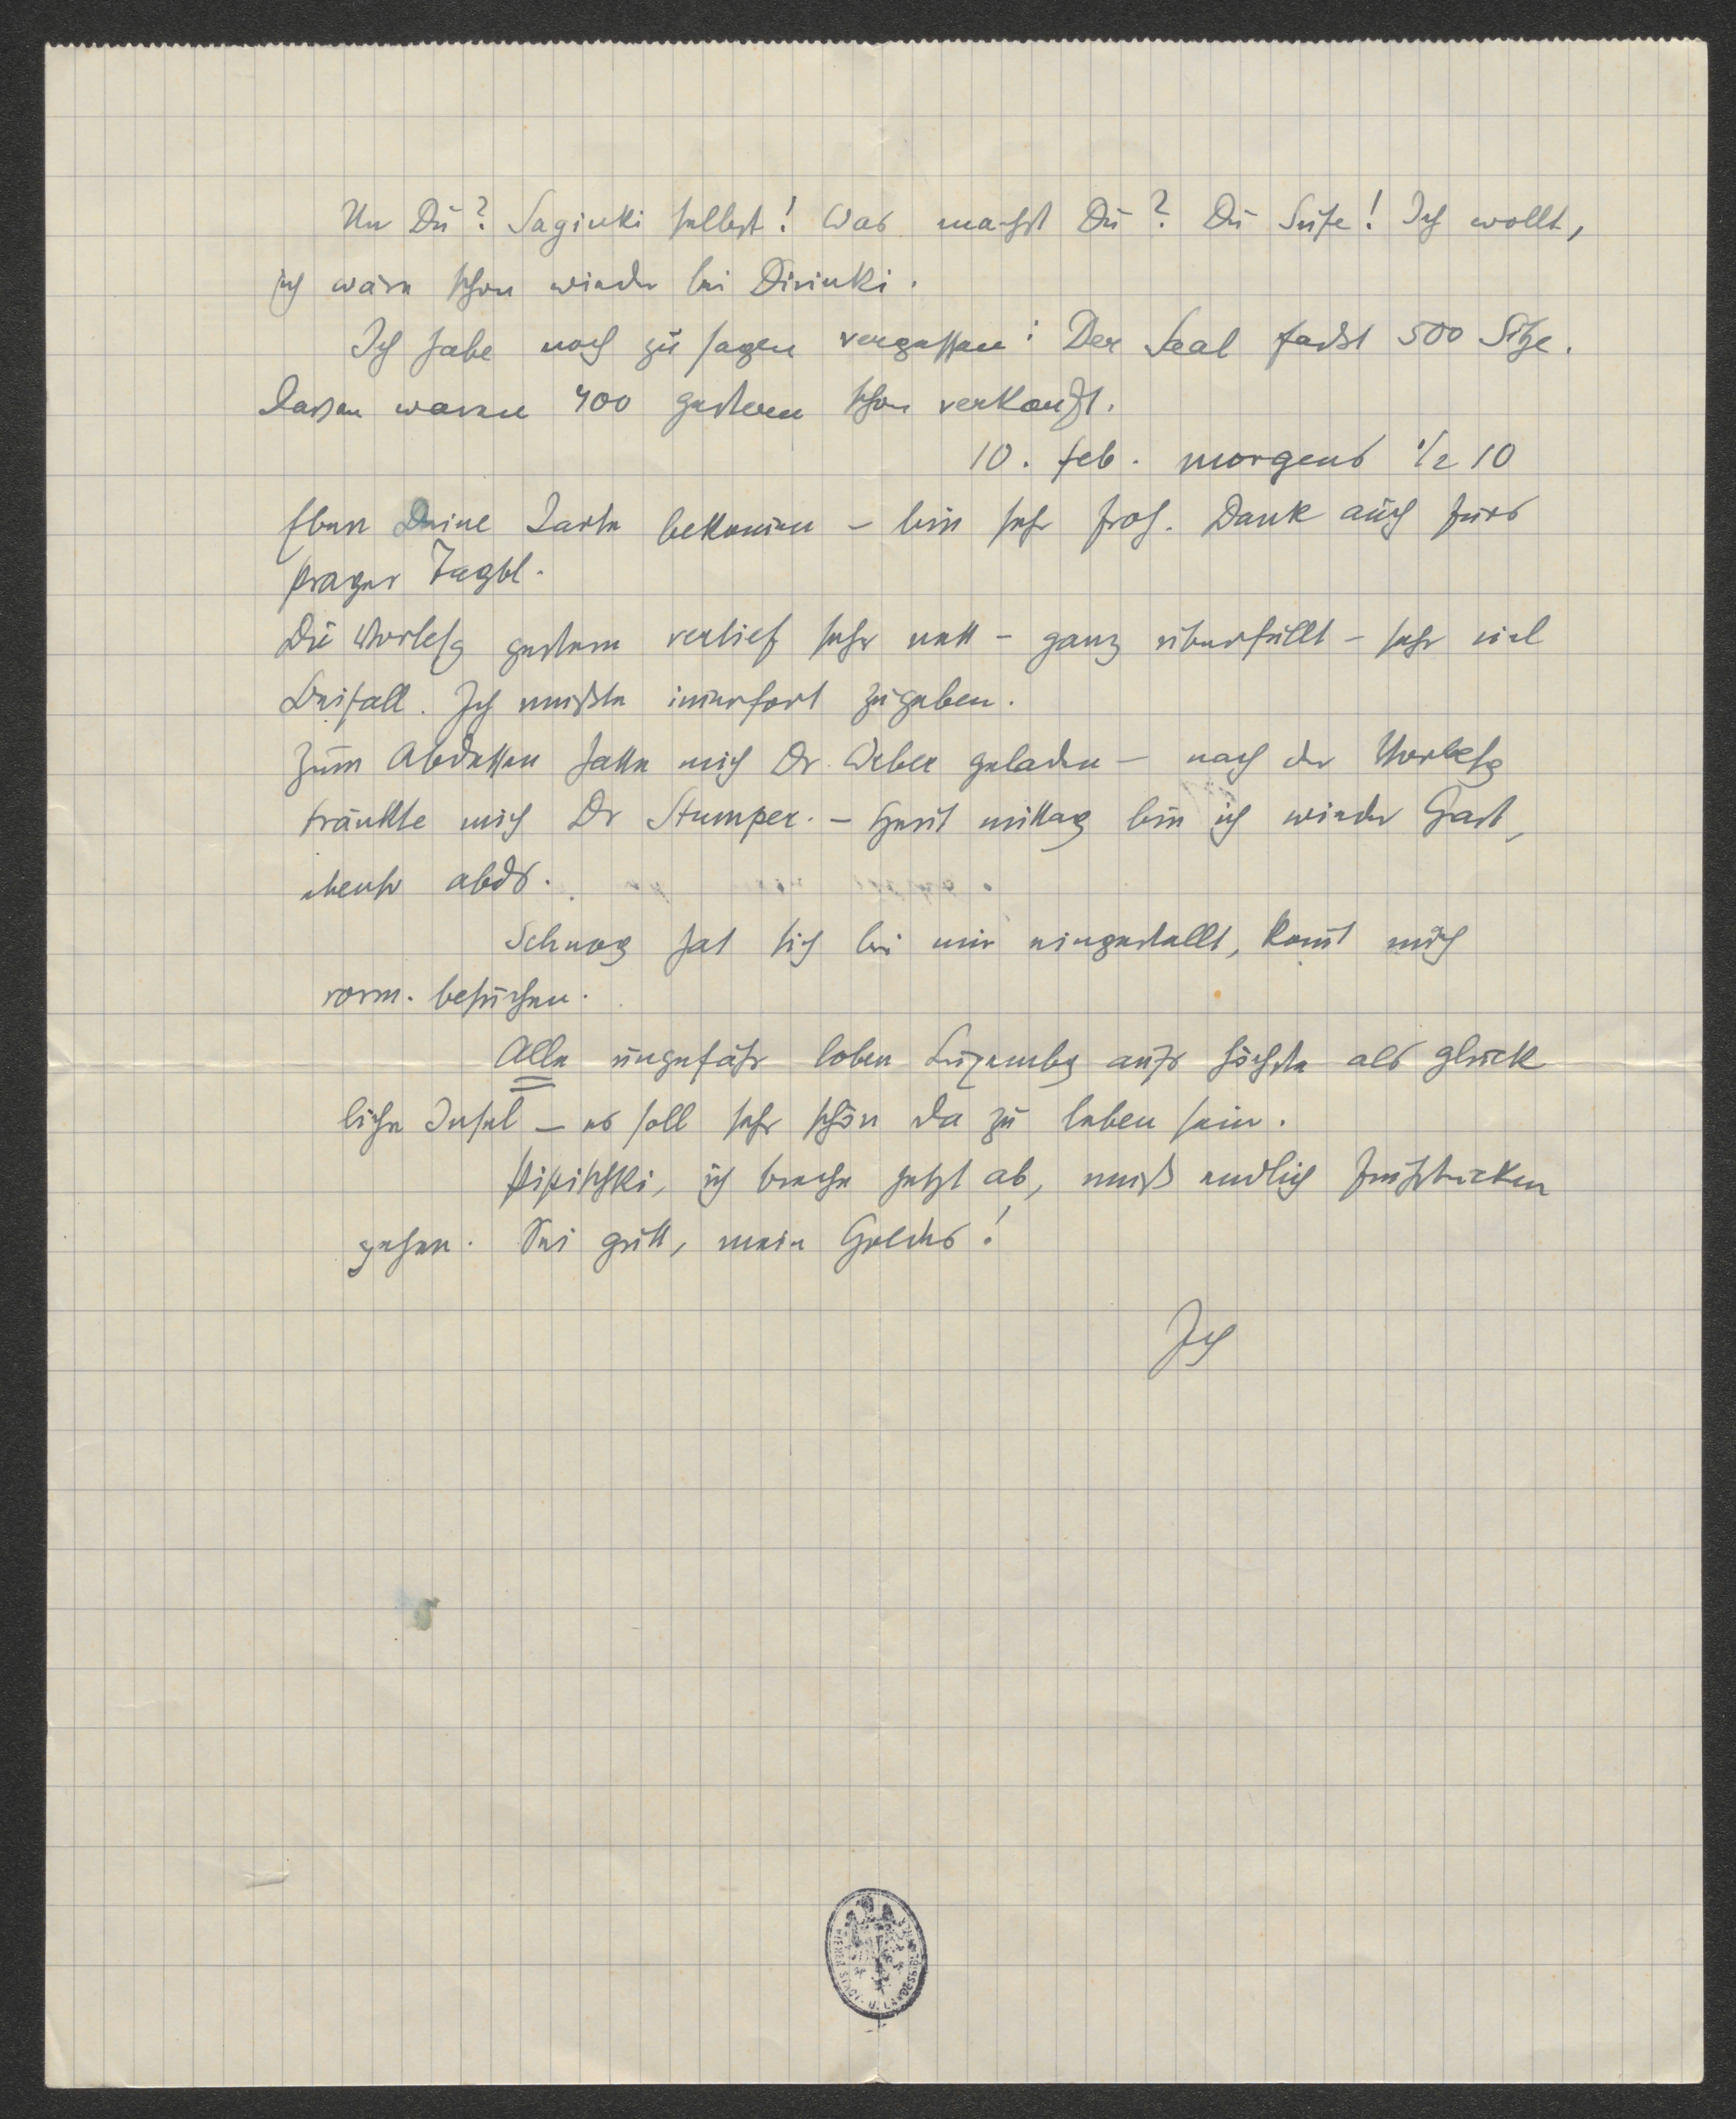 Un Du? Saginki selbst! Was machst Du? Du Süße! Ich wollt,
ich wäre schon wieder bei Dirinki.
Ich habe noch zu sagen vergessen: Der Saal faßt 500 Sitze.
Davon waren 400 gestern schon verkauft.
10. Feb. morgens ½ 10
Eben Deine Karte bekommen – bin sehr froh. Dank auch fürs
Prager Tagbl.
Die Vorlesg gestern verlief sehr nett – ganz überfüllt – sehr viel
Beifall. Ich mußte immerfort zugeben.
Zum Abdessen hatte mich Dr. Weber geladen – nach der Vorlesg
tränkte mich Dr Stumper. – Heut mittag bin ich wieder Gast,
ebenso abds.
Schnog hat sich bei mir eingestellt, kommt mich
vorm. besuchen.
Alle ungefähr loben Luxembg aufs höchste als glück
liche Insel – es soll sehr schön da zu leben sein.
ich breche jetzt ab, muß endlich frühstücken
gehen. Sei gutt, mein Goldes!
Ich